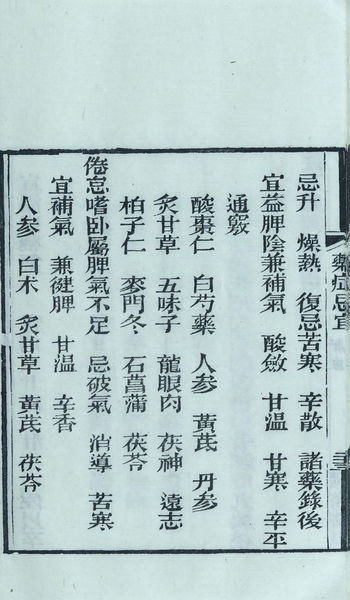 忌升　燥熱　復忌苦寒　辛散　諸藥錄後
宜益脾陰兼補氣　酸斂　甘温　甘寒　辛平
通竅
酸棗仁　白芍藥　人參　黃芪　丹參
炙甘草　五味子　龍眼肉　茯神　遠志
柏子仁　麥門冬　石菖蒲　茯苓
倦怠嗜卧屬脾氣不足　忌破氣　消導　苦寒
宜補氣　兼健脾　甘温　辛香
人參　白术　炙甘草　黃芪　茯苓
藥症忌宜